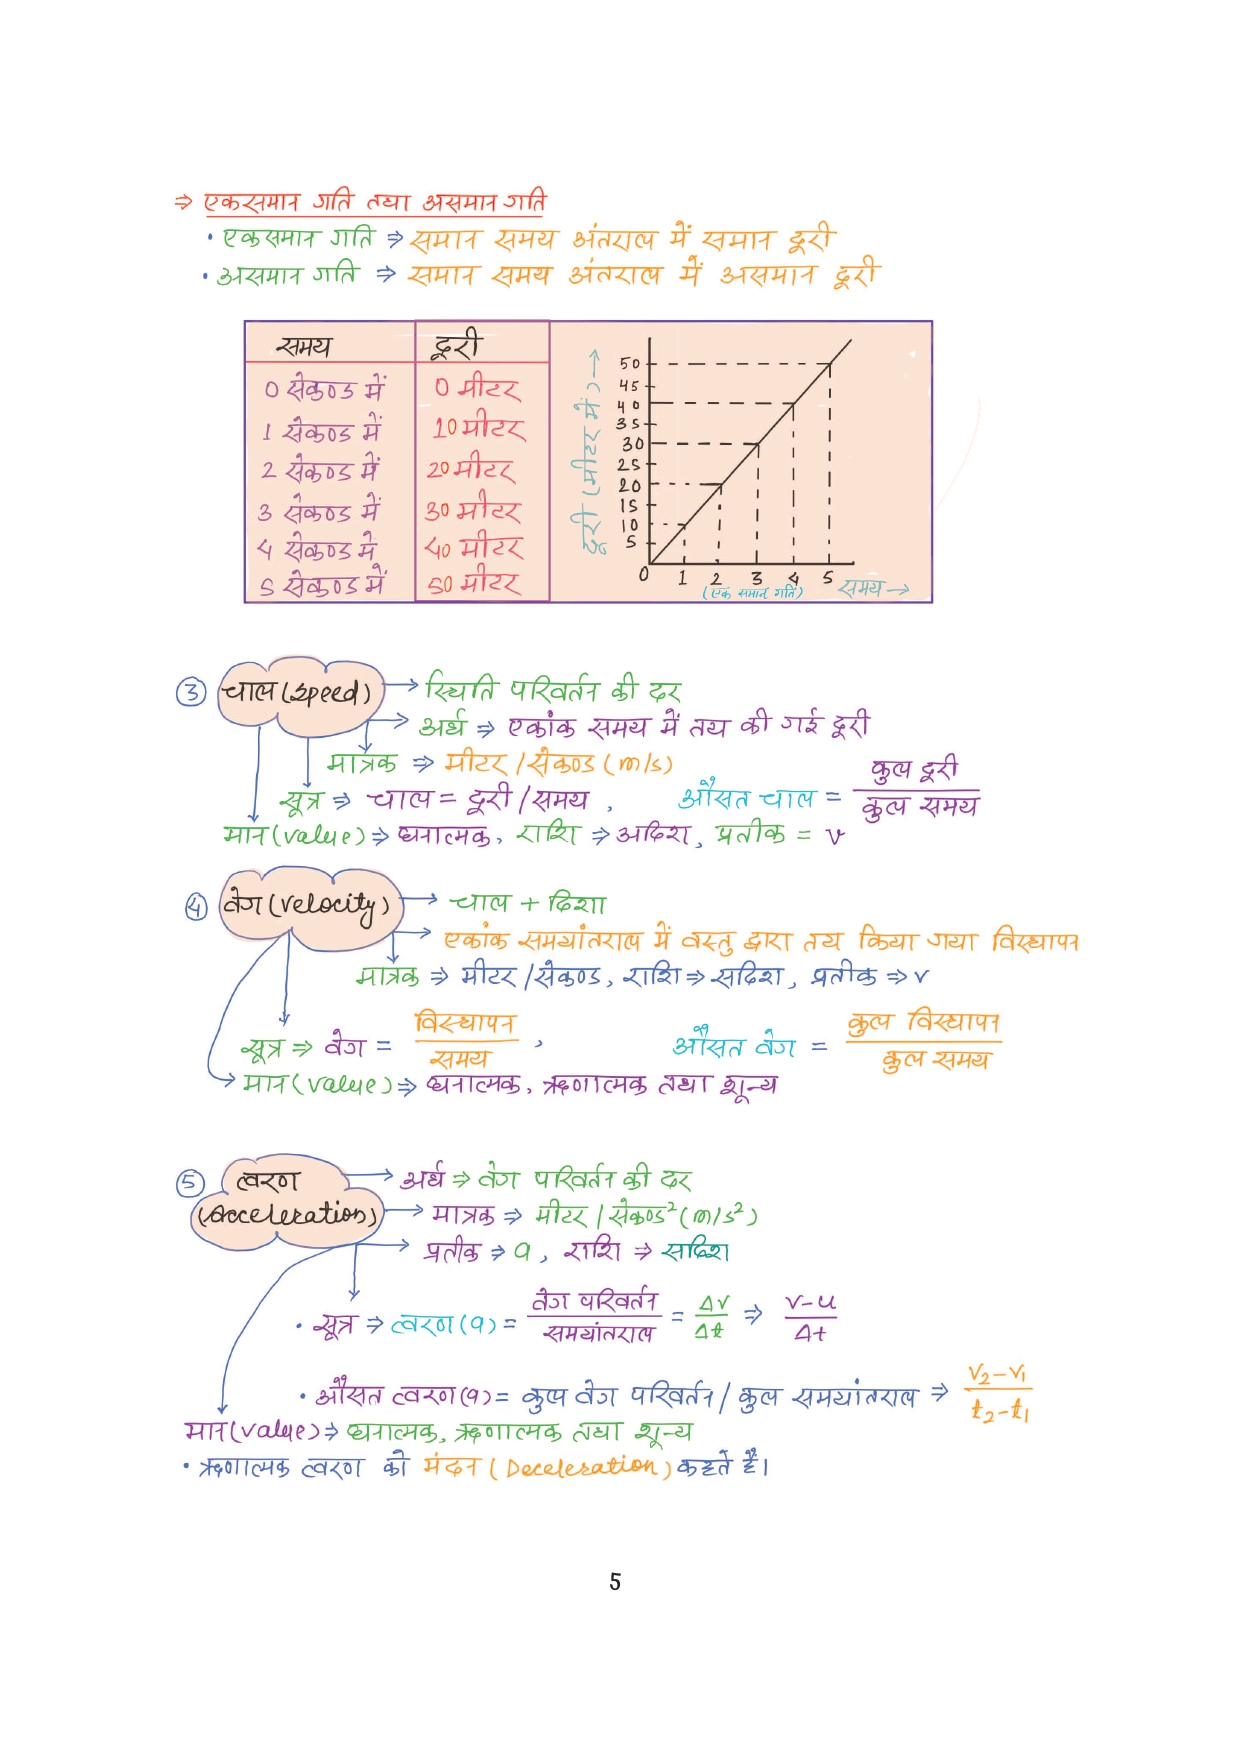 ⇒ एकसमान गति तथा असमान गति
• एकसमान गति ⇒ समान समय अंतराल में समान दूरी
• असमान गति ⇒ समान समय अंतराल में असमान दूरी
समय दूरी
0 सेकण्ड में 0 मीटर
1 सेकण्ड में 10 मीटर
2 सेकण्ड में 20 मीटर
3 सेकण्ड में 30 मीटर
4 सेकण्ड में 40 मीटर
5 सेकण्ड में 50 मीटर
दूरी (मीटर में) →
50
45
40
35
30
25
20
15
10
5
0 1 2 3 4 5 समय →
(एक समान गति)
③ चाल (speed) → स्थिति परिवर्तन की दर
→ अर्थ ⇒ एकांक समय में तय की गई दूरी
मात्रक ⇒ मीटर / सेकण्ड (m/s)
सूत्र ⇒ चाल = दूरी / समय , औसत चाल = कुल दूरी / कुल समय
मान (value) ⇒ धनात्मक, राशि ⇒ अदिश, प्रतीक = v
④ वेग (velocity) → चाल + दिशा
→ एकांक समयांतराल में वस्तु द्वारा तय किया गया विस्थापन
मात्रक ⇒ मीटर / सेकण्ड, राशि ⇒ सदिश, प्रतीक ⇒ v
सूत्र ⇒ वेग = विस्थापन / समय , औसत वेग = कुल विस्थापन / कुल समय
→ मान (value) ⇒ धनात्मक, ऋणात्मक तथा शून्य
⑤ त्वरण → अर्थ ⇒ वेग परिवर्तन की दर
(Acceleration) → मात्रक ⇒ मीटर / सेकण्ड² (m/s²)
→ प्रतीक ⇒ a, राशि ⇒ सदिश
• सूत्र ⇒ त्वरण (a) = वेग परिवर्तन / समयांतराल = Δv / Δt ⇒ v-u / Δt
• औसत त्वरण (a) = कुल वेग परिवर्तन / कुल समयांतराल ⇒ v₂-v₁ / t₂-t₁
मान (value) ⇒ धनात्मक, ऋणात्मक तथा शून्य
• ऋणात्मक त्वरण को मंदन (Deceleration) कहते हैं।
5